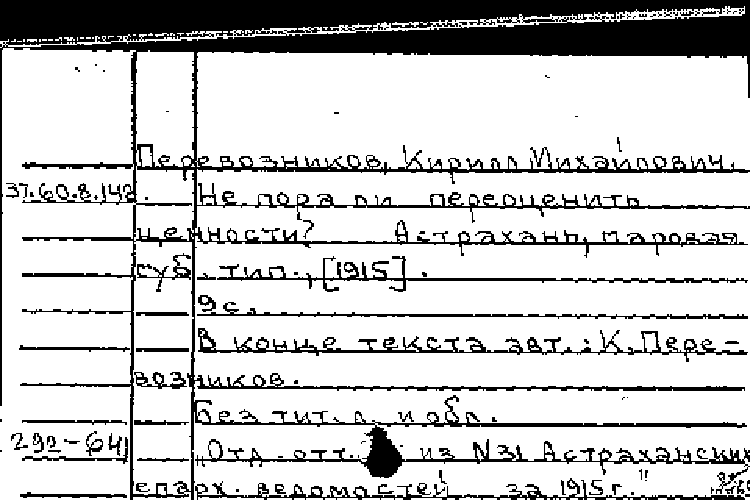 Перевозников, Кирилл Михайлович.
37.60.8.148. Не пора ли переоценить
ценности? Астрахань, паровая
губ. тип., [1915].
9 с.
В конце текста авт.: К. Пере-
возников.
Без тит. л. и обл.
292-641 "Отд. отт. из N31 Астраханских
епарх. ведомостей за 1915 г."